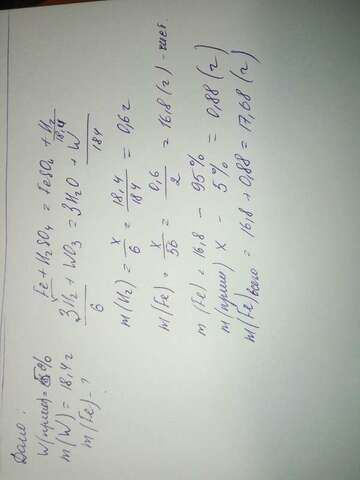 Дано:
W(прим)=5%
m(W) = 18,4 г
m(Fe) - ?
Fe + H2SO4 = FeSO4 + H2
18,4
3H2 + WO3 = 3H2O + W
6
184
m(H2) = x/6 = 18,4/184 = 0,6 г
m(Fe) = x/56 = 0,6/2 = 16,8 (г) - чист.
m(Fe) = 16,8 - 95%
m(прим) x - 5% = 0,88 (г)
m(Fe) всего = 16,8 + 0,88 = 17,68 (г)